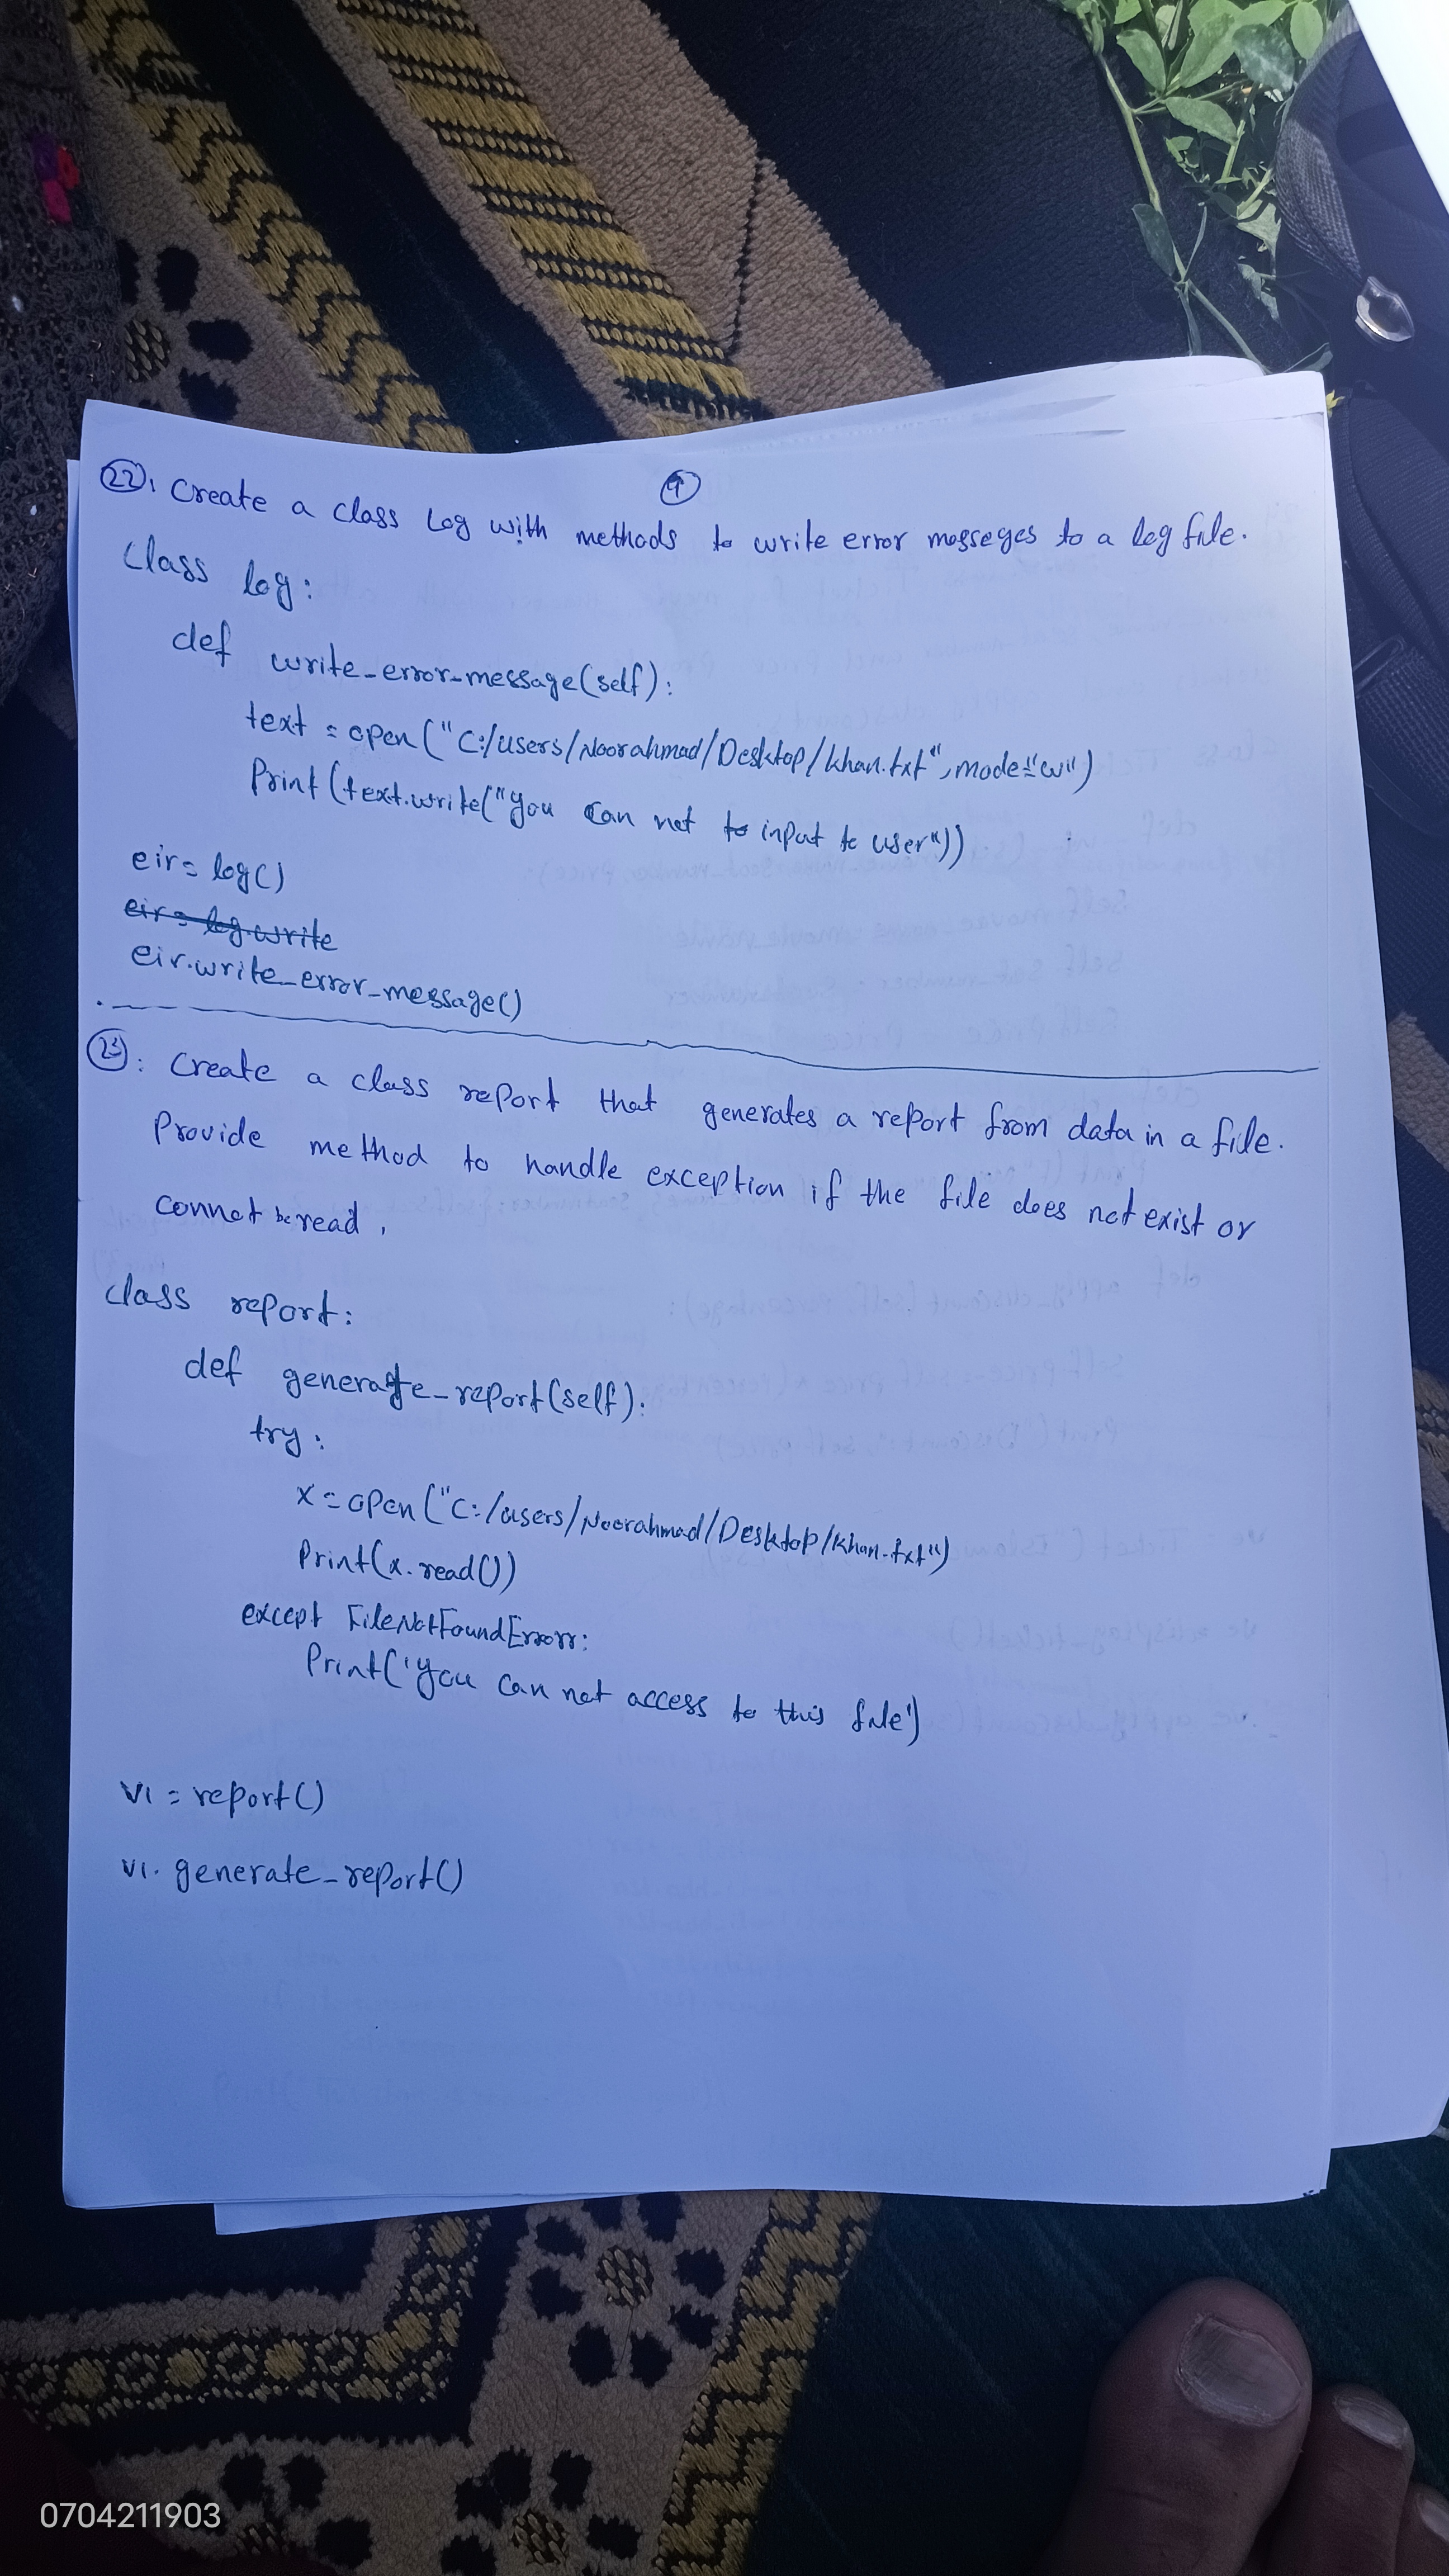 22. Create a class Log with methods to write error messeges to a log file.
9
class log:
def write_error_message(self):
text = open("C:/users/Noorahmad/Desktop/khan.txt", mode="w")
Print(text.write("you can not to input to user"))
eir = log()
eir = log.write
eir.write_error_message()
23: Create a class report that generates a report from data in a file.
Provide method to handle exception if the file does not exist or
connot be read.
class report:
def generate_report(self):
try:
x = open("C:/users/Noorahmad/Desktop/khan.txt")
Print(x.read())
except FileNotFoundError:
Print('you can not access to this file')
v1 = report()
v1. generate_report()
0704211903